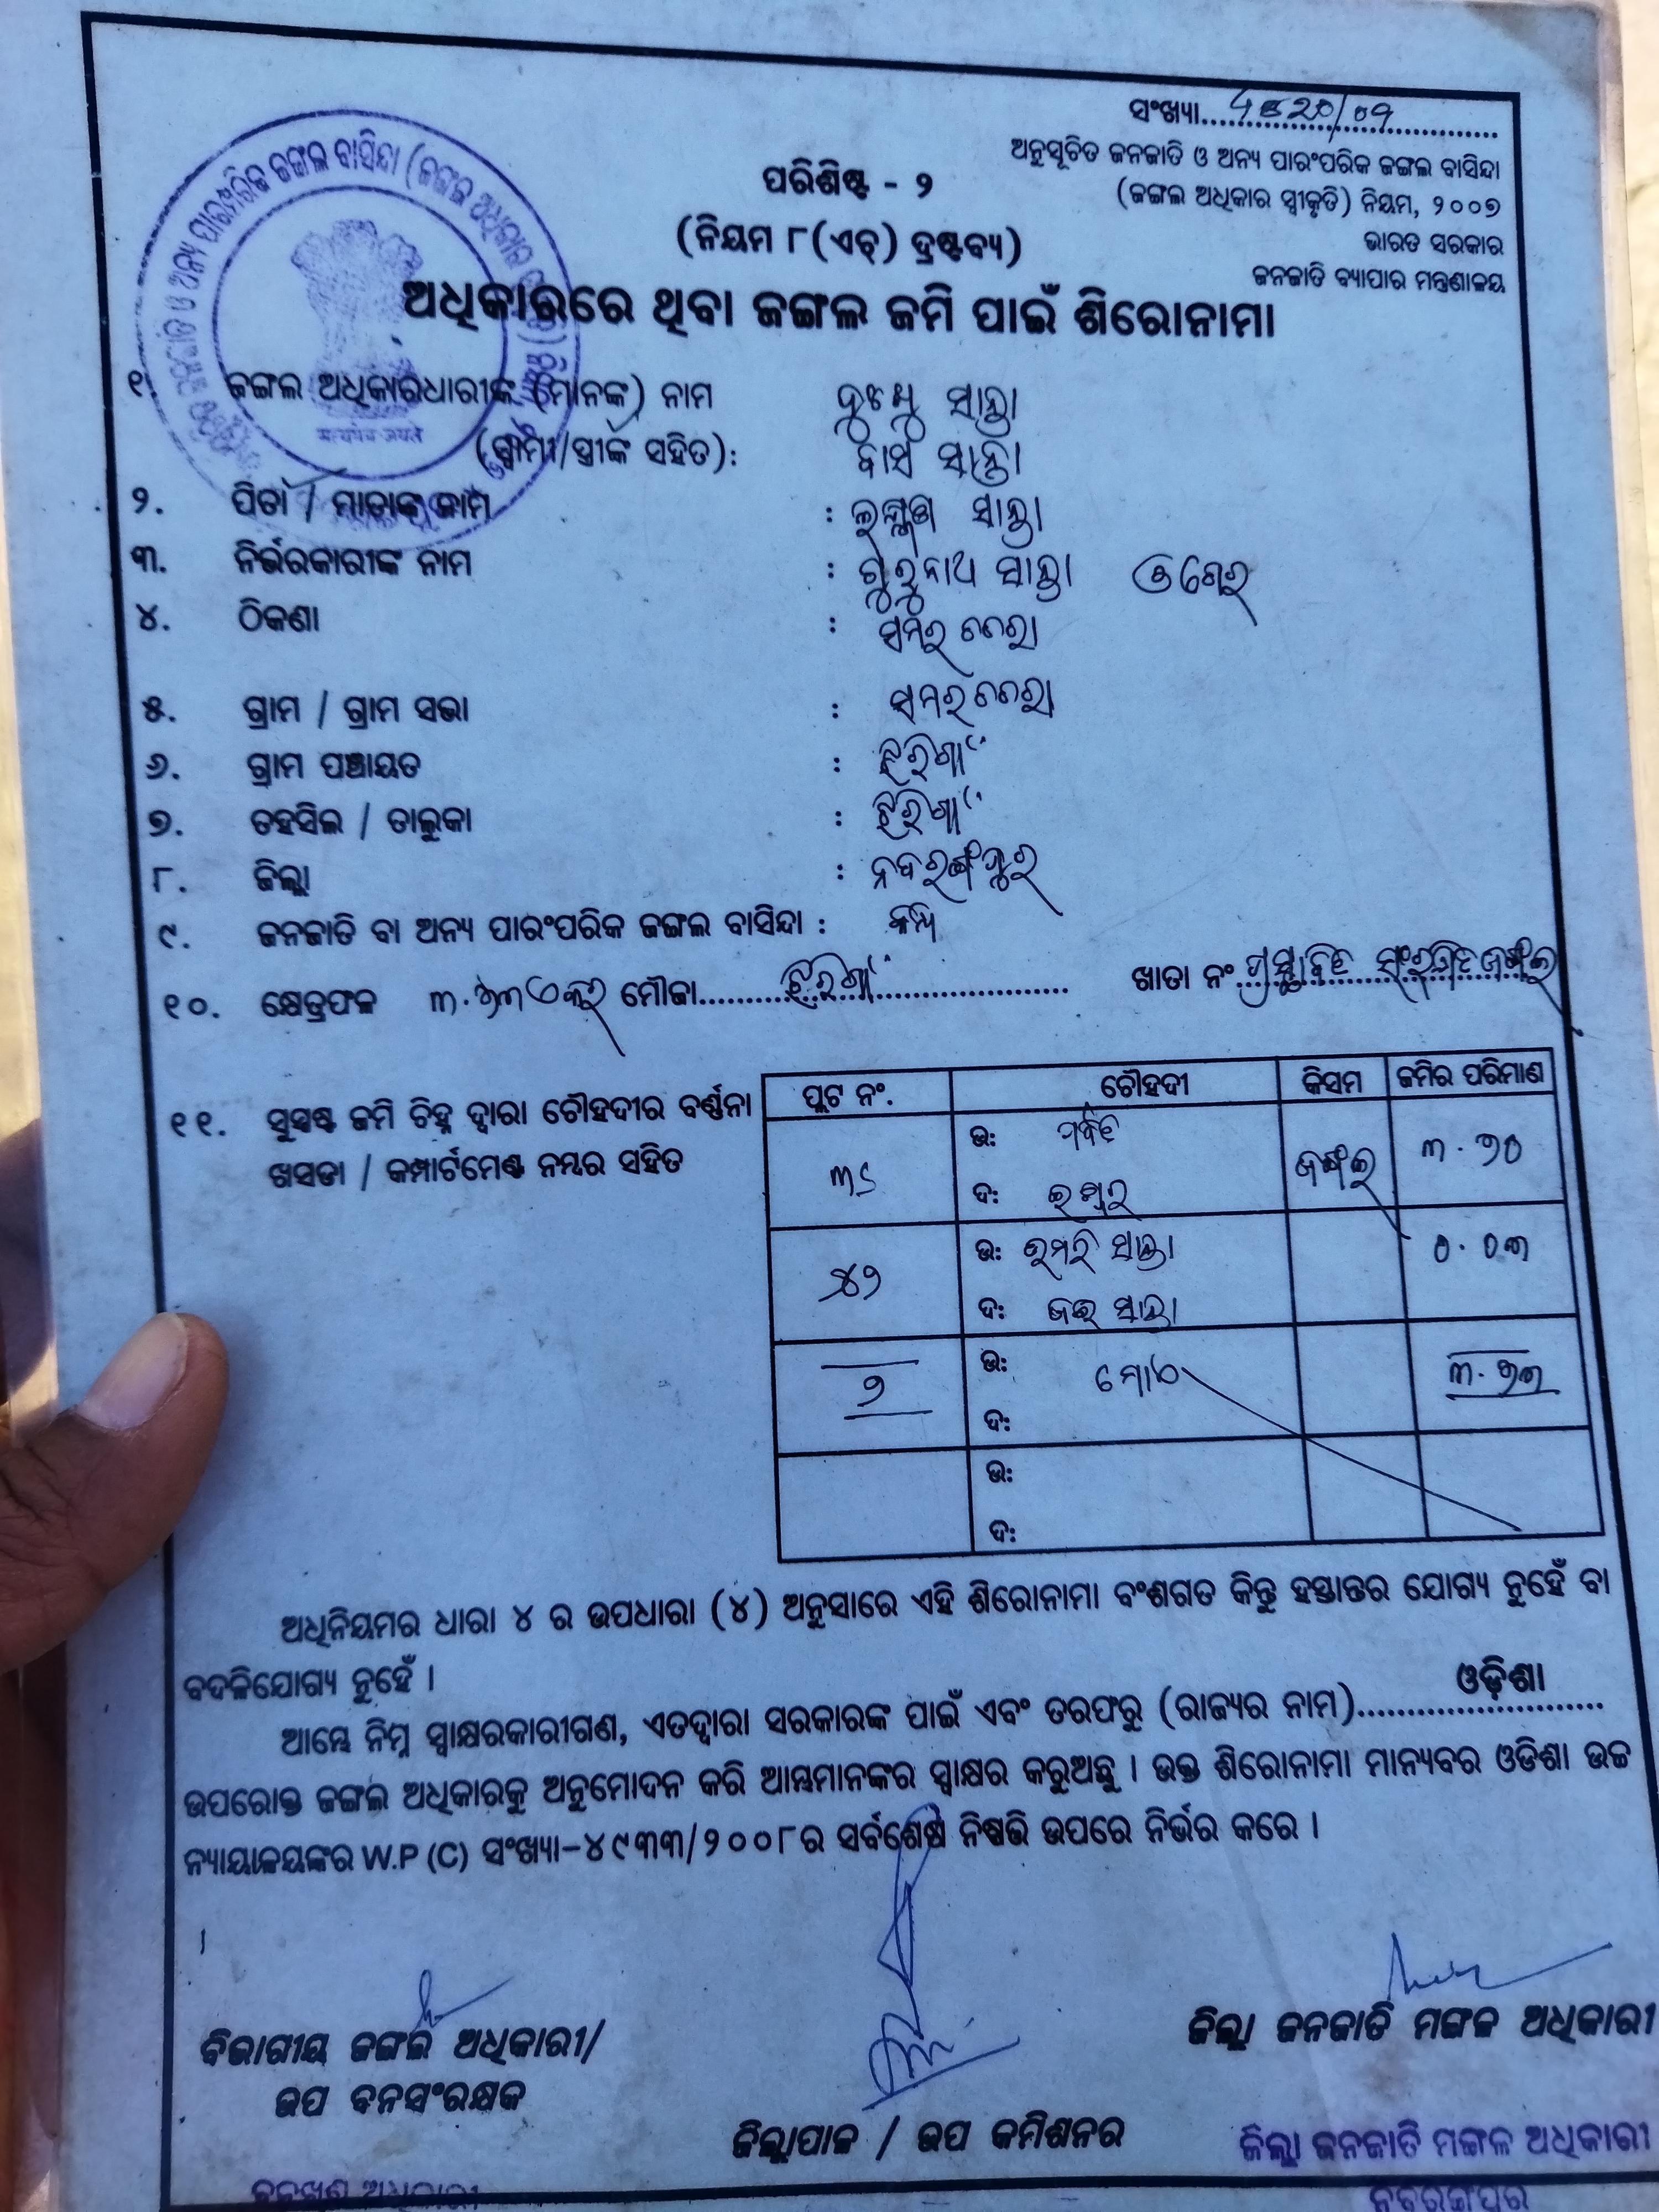 ସଂଖ୍ୟା
ଅନୁସୂଚିତ ଜନଜାତି ଓ ଅନ୍ୟ ପାରଂପରିକ ଜଙ୍ଗଲ ବାସିନ୍ଦା
ପରିଶିଷ୍ଟ - ୨
(ଜଙ୍ଗଲ ଅଧିକାର ସ୍ୱୀକୃତି) ନିୟମ, ୨୦୦୭
(ନିୟମ ୮(ଏଚ୍) ଦ୍ରଷ୍ଟବ୍ୟ)
ଭାରତ ସରକାର
ଜନଜାତି ବ୍ୟାପାର ମନ୍ତ୍ରଣାଳୟ
ଅଧିକାରରେ ଥିବା ଜଙ୍ଗଲ ଜମି ପାଇଁ ଶିରୋନାମା
सत्यमेव जयते
୧. ଜଙ୍ଗଲ ଅଧିକାରଧାରୀଙ୍କ (ମାନଙ୍କ) ନାମ
(ସ୍ୱାମୀ/ସ୍ତ୍ରୀଙ୍କ ସହିତ):
୨. ପିତା / ମାତାଙ୍କ ନାମ :
୩. ନିର୍ଭରକାରୀଙ୍କ ନାମ : ଗୁରୁନାଥ
୪. ଠିକଣା :
୫. ଗ୍ରାମ / ଗ୍ରାମ ସଭା :
୬. ଗ୍ରାମ ପଞ୍ଚାୟତ : ଝରିଗାଁ
୭. ତହସିଲ / ତାଲୁକା : ଝରିଗାଁ
୮. ଜିଲ୍ଲା : ନବରଙ୍ଗପୁର
୯. ଜନଜାତି ବା ଅନ୍ୟ ପାରଂପରିକ ଜଙ୍ଗଲ ବାସିନ୍ଦା :
୧୦. କ୍ଷେତ୍ରଫଳ ୩.୭୩ ଏକର ମୌଜା ଝରିଗାଁ ଖାତା ନଂ ପ୍ରସ୍ତାବିତ ସଂରକ୍ଷିତ ଜଙ୍ଗଲ
୧୧. ସୁସ୍ପଷ୍ଟ ଜମି ଚିହ୍ନ ଦ୍ୱାରା ଚୌହଦୀର ବର୍ଣ୍ଣନା
ଖସଡା / କମ୍ପାର୍ଟମେଣ୍ଟ ନମ୍ବର ସହିତ
ପ୍ଲଟ ନଂ. ଚୌହଦୀ କିସମ ଜମିର ପରିମାଣ
ଉ: ପର୍ବତ
ଜଙ୍ଗଲ ୩.୭୦
ଦ:
ଉ:
୦.୦୩
ଦ:
୨ ଉ: ମୋଠ ୩.୭୩
ଦ:
ଉ:
ଦ:
ଅଧିନିୟମର ଧାରା ୪ ର ଉପଧାରା (୪) ଅନୁସାରେ ଏହି ଶିରୋନାମା ବଂଶଗତ କିନ୍ତୁ ହସ୍ତାନ୍ତର ଯୋଗ୍ୟ ନୁହେଁ ବା
ବଦଳିଯୋଗ୍ୟ ନୁହେଁ ।
ଆମ୍ଭେ ନିମ୍ନ ସ୍ୱାକ୍ଷରକାରୀଗଣ, ଏତଦ୍ୱାରା ସରକାରଙ୍କ ପାଇଁ ଏବଂ ତରଫରୁ (ରାଜ୍ୟର ନାମ) ଓଡ଼ିଶା
ଉପରୋକ୍ତ ଜଙ୍ଗଲ ଅଧିକାରକୁ ଅନୁମୋଦନ କରି ଆମ୍ଭମାନଙ୍କର ସ୍ୱାକ୍ଷର କରୁଅଛୁ । ଉକ୍ତ ଶିରୋନାମା ମାନ୍ୟବର ଓଡିଶା ଉଚ୍ଚ
ନ୍ୟାୟାଳୟଙ୍କର W.P (C) ସଂଖ୍ୟା-୪୯୩୩/୨୦୦୮ର ସର୍ବଶେଷ ନିଷ୍ପତ୍ତି ଉପରେ ନିର୍ଭର କରେ ।
ବିଭାଗୀୟ ଜଙ୍ଗଲ ଅଧିକାରୀ/
ଉପ ବନସଂରକ୍ଷକ
ଜିଲ୍ଲାପାଳ / ଉପ କମିଶନର
ଜିଲ୍ଲା ଜନଜାତି ମଙ୍ଗଳ ଅଧିକାରୀ
ଜିଲ୍ଲା ଜନଜାତି ମଙ୍ଗଳ ଅଧିକାରୀ
ନବରଙ୍ଗପୁର
ବନଖଣ୍ଡ ଅଧିକାରୀ